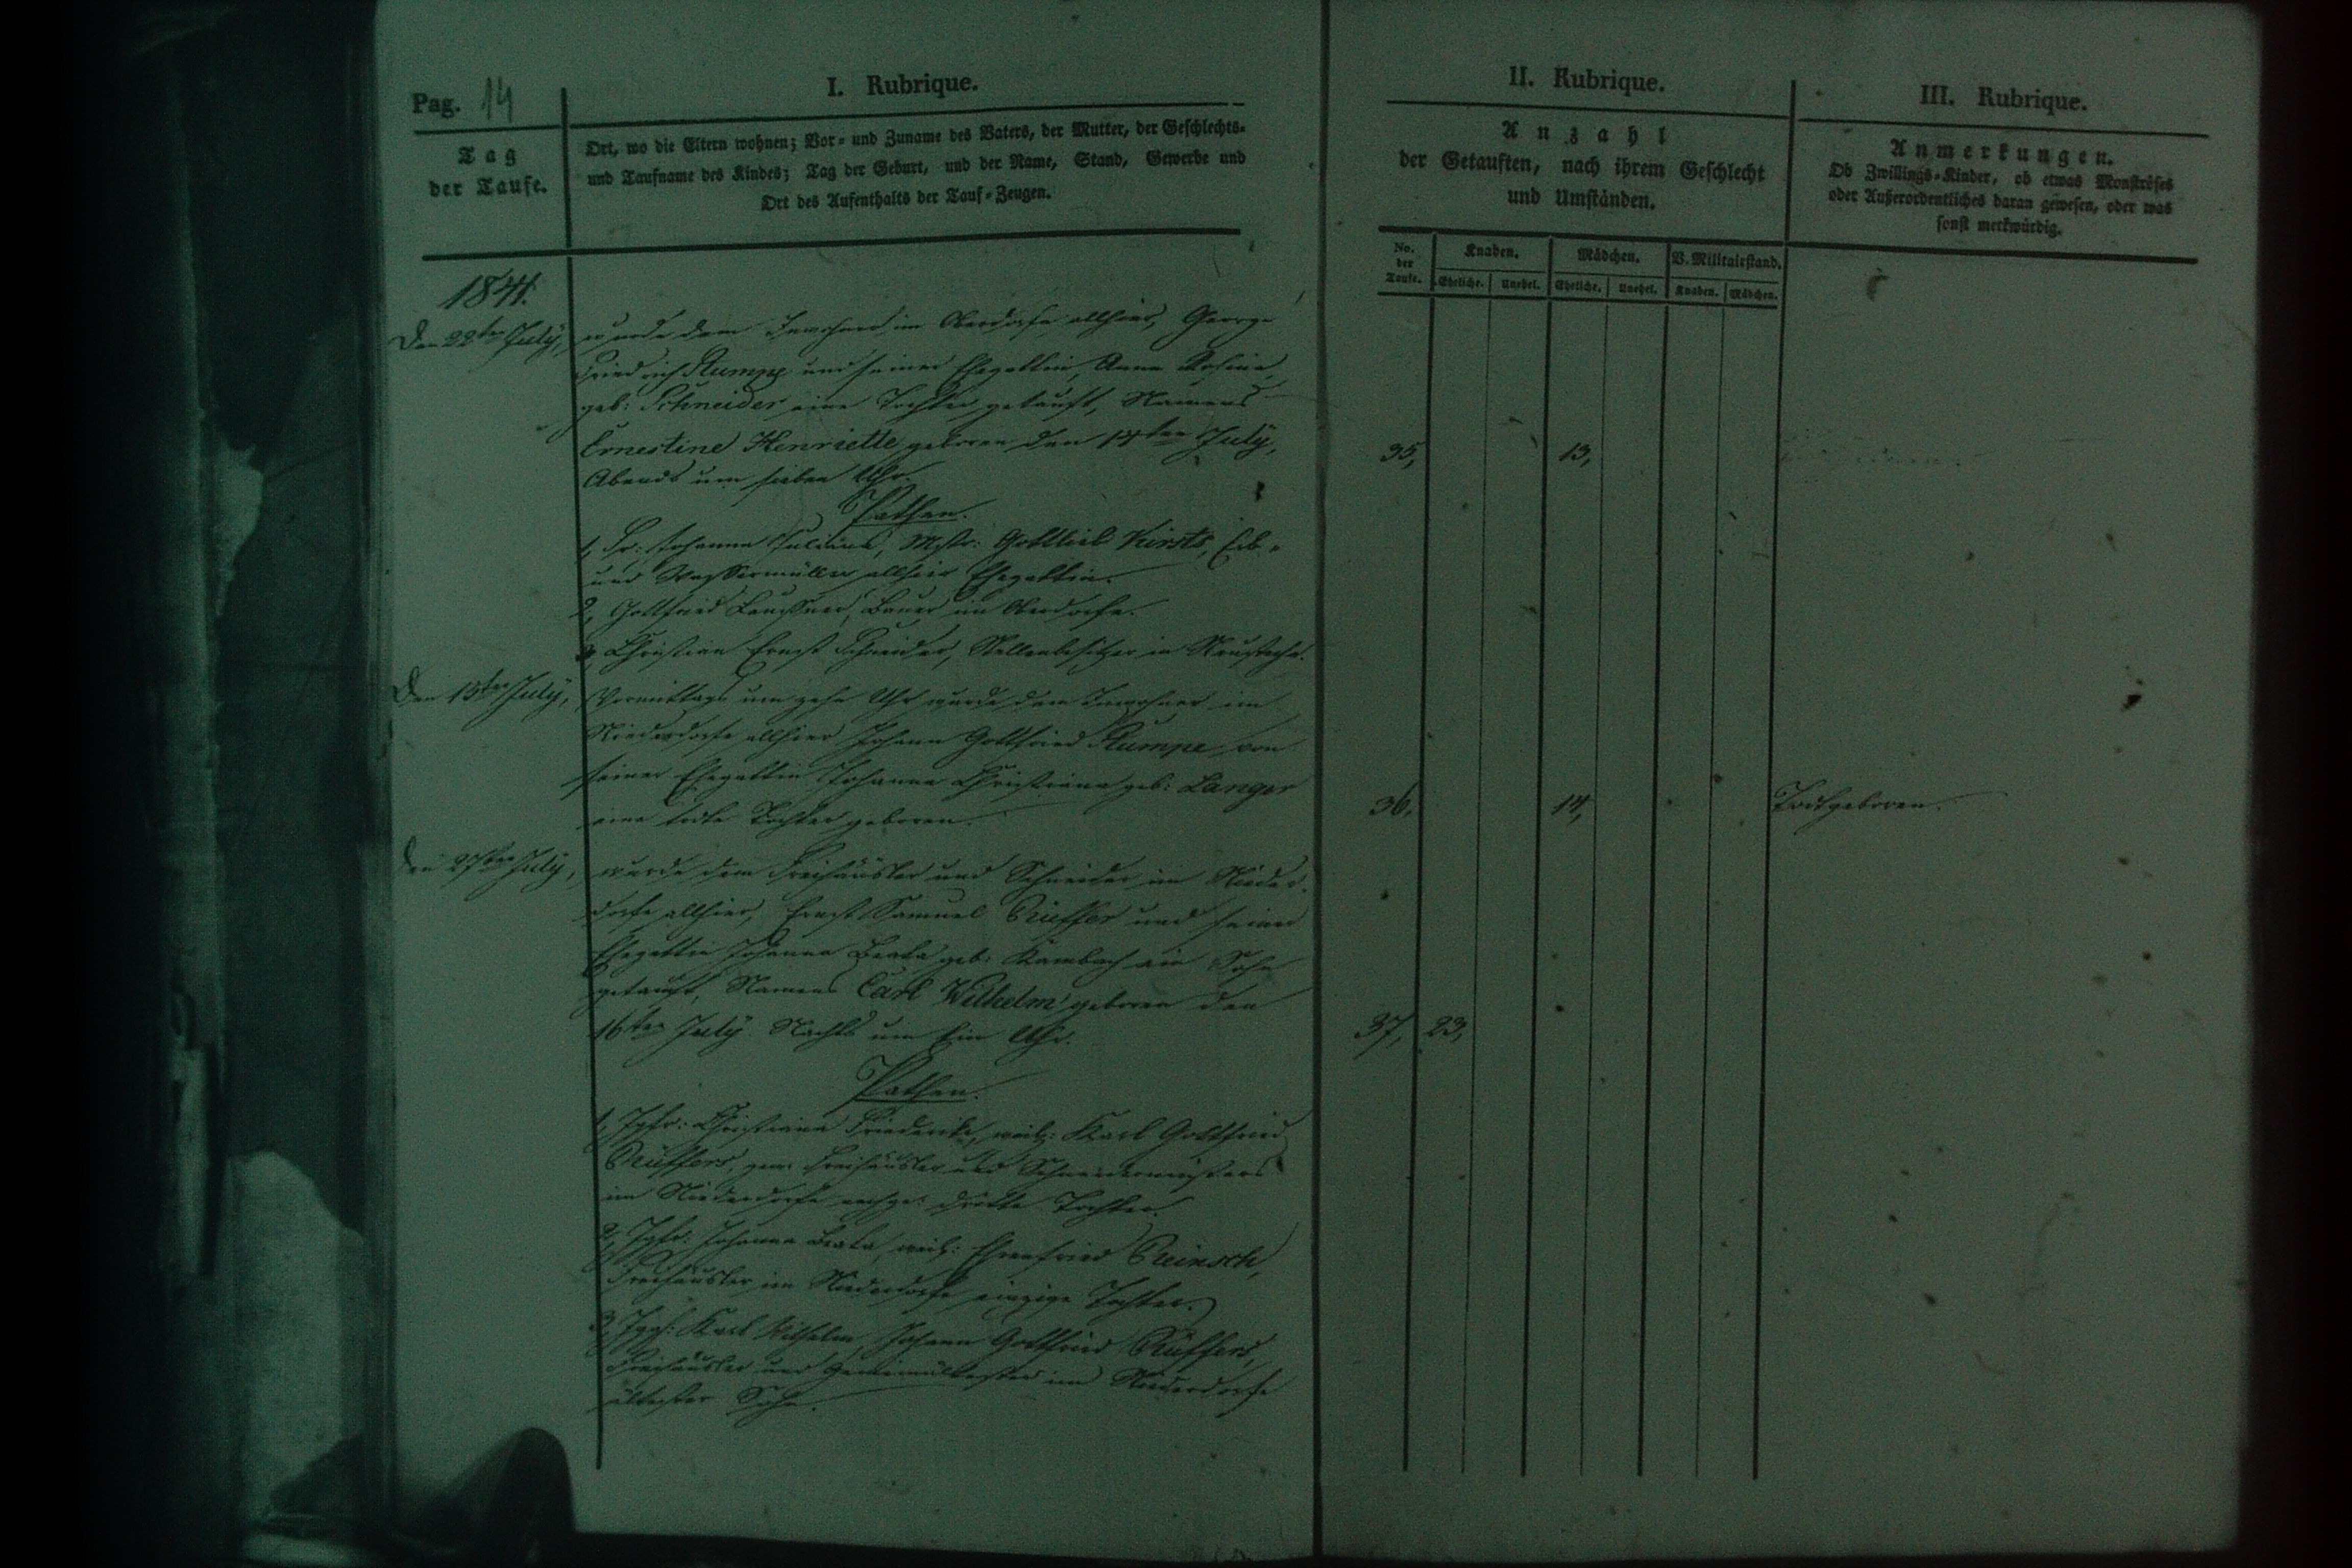 Pag. 14
I. Rubrique.
II. Rubrique.
III. Rubrique.
Tag
der Taufe.
Ort, wo die Eltern wohnen; Vor- und Zuname des Vaters, der Mutter, der Geschlechts-
und Taufname des Kindes; Tag der Geburt, und der Name, Stand, Gewerbe und
Ort des Aufenthalts der Tauf-Zeugen.
Anzahl
der Getauften, nach ihrem Geschlecht
und Umständen.
Anmerkungen.
Ob Zwillings-Kinder, ob etwas Monströses
oder Außerordentliches daran gewesen, oder was
sonst merkwürdig.
No.
der
Taufe.
Knaben.
Mädchen.
V. Militairstand.
Eheliche. Unehel. Eheliche. Unehel. Knaben. Mädchen.
1841.
Den 22ten July,
wurde dem Inwohner im Oberdorfe allhier, George
Friedrich Rumpe und seiner Ehegattin, Anna Rosina
geb: Schneider eine Tochter getauft, Namens
Ernestine Henriette geboren den 14ten July,
35, 13,
Abends um sieben Uhr.
Pathen.
1, Fr: Johanna Juliana, Mstr: Gottlieb Kirsts, Erb-
und Wassermüller allhier Ehegattin.
2, Gottfried Bauer im Oberdorfe.
3, Christian Ernst Schneider, Stellenbesitzer in
Den 15ten July,
Vormittags um zehn Uhr wurde dem Inwohner im
Niederdorfe allhier Johann Gottfried Rumpe von
seiner Ehegattin Johanna Christiana geb: Langer
eine todte Tochter geboren.
36. 14, Todtgeboren.
Den 27ten July,
wurde dem Freihäusler und Schneider im Nieder-
dorfe allhier, Ernst Samuel Rüffer und seiner
Ehegattin Johanna Beata geb: Kambach ein Sohn
getauft, Namens Carl Wilhelm geboren den
16ten July Nachts um Ein Uhr.
37, 23,
Pathen.
1, Jgfr: Christiana Friederike, weil: Karl Gottfried
Rüffers, gew: Freihäusler und Schneidermeisters
im Niederdorfe dritte Tochter.
2, Jgfr: Johanna Beata, weil: Ehrenfried Reinsch,
Freihäusler im Niederdorfe einzige Tochter.
3, Jggs: Karl Wilhelm, Johann Gottfried Rüffers,
Freihäusler und im Niederdorfe
ältester Sohn.